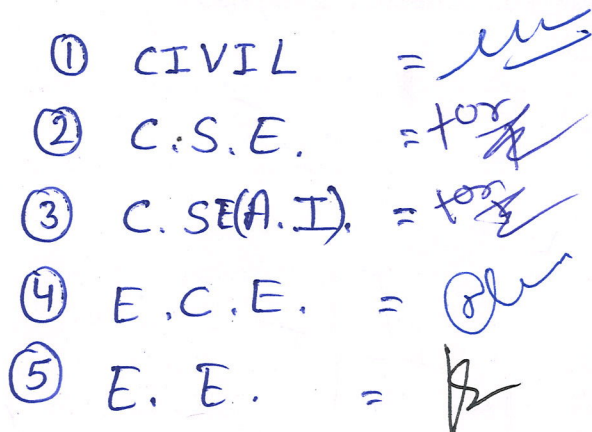 ① CIVIL =
② C.S.E. =
③ C.SE(A.I). =
④ E.C.E. =
⑤ E. E. =